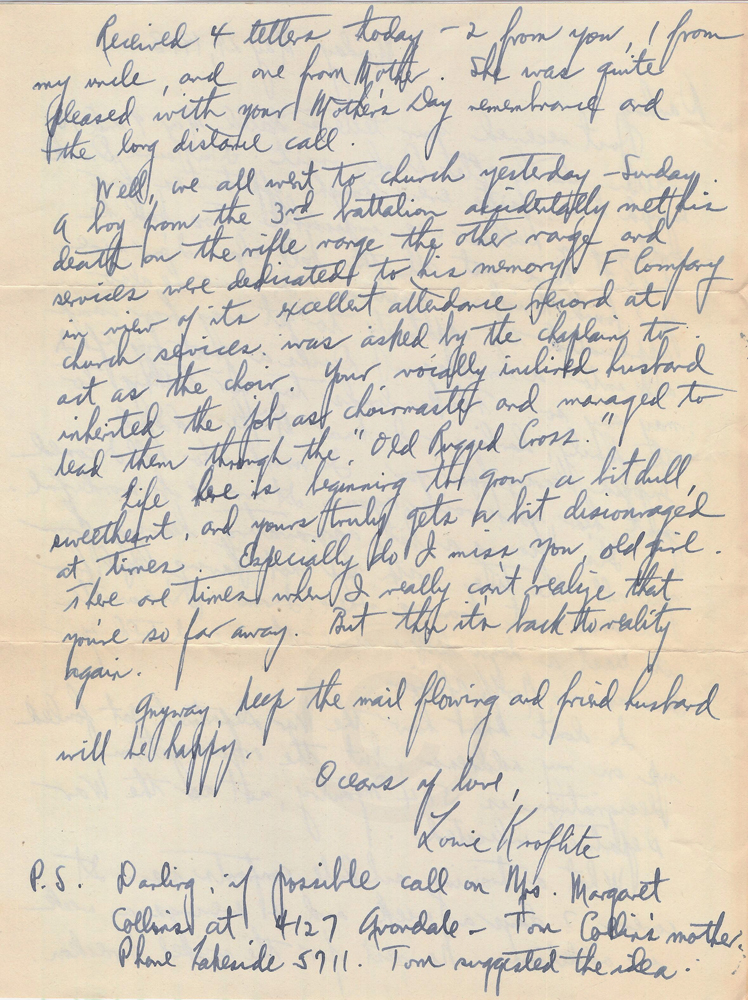 Received 4 letters today - 2 from you, 1 from
my uncle, and one from Mother. She was quite
pleased with your Mother's Day remembrance and
the long distance call.
Well, we all went to church yesterday - Sunday.
A boy from the 3rd battalion accidentally met his
death on the rifle range the other range and
services were dedicated to his memory. F Company
in view of its excellent attendance record at
church services. was asked by the chaplain to
act as the choir. Your vocally inclined husband
inherited the job as choirmaster and managed to
lead them through the "Old Rugged Cross."
Life here is beginning to grow a bit dull,
sweetheart, and yours truly gets a bit discouraged
at times. Especially do I miss you, old girl.
There are times when I really can't realize that
you're so far away. But then it's back to reality
again.
Anyway, keep the mail flowing and friend husband
will be happy.
Oceans of love,
Louie
P.S. Darling, if possible call on Mrs. Margaret
Collins at 4127 Avondale - Tom Collins mother.
Phone Lakeside 5711. Tom suggested the idea.